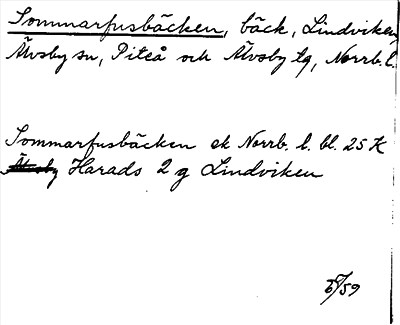 Sommarfusbäcken, bäck, Lindviken,
Älvsby sn, Piteå och Älvsby tg, Norrb. l.
Sommarfusbäcken ek Norrb. l. bl. 25 K
Harads 2 g Lindviken